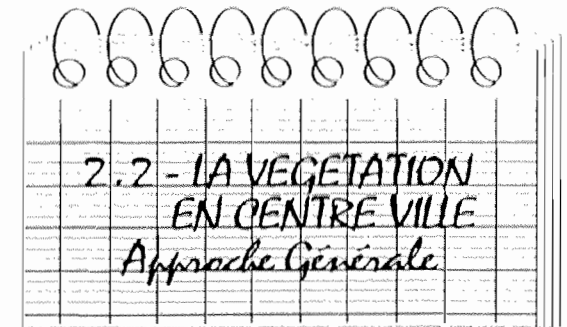 2.2 - LA VEGETATION
EN CENTRE VILLE
Approche Générale